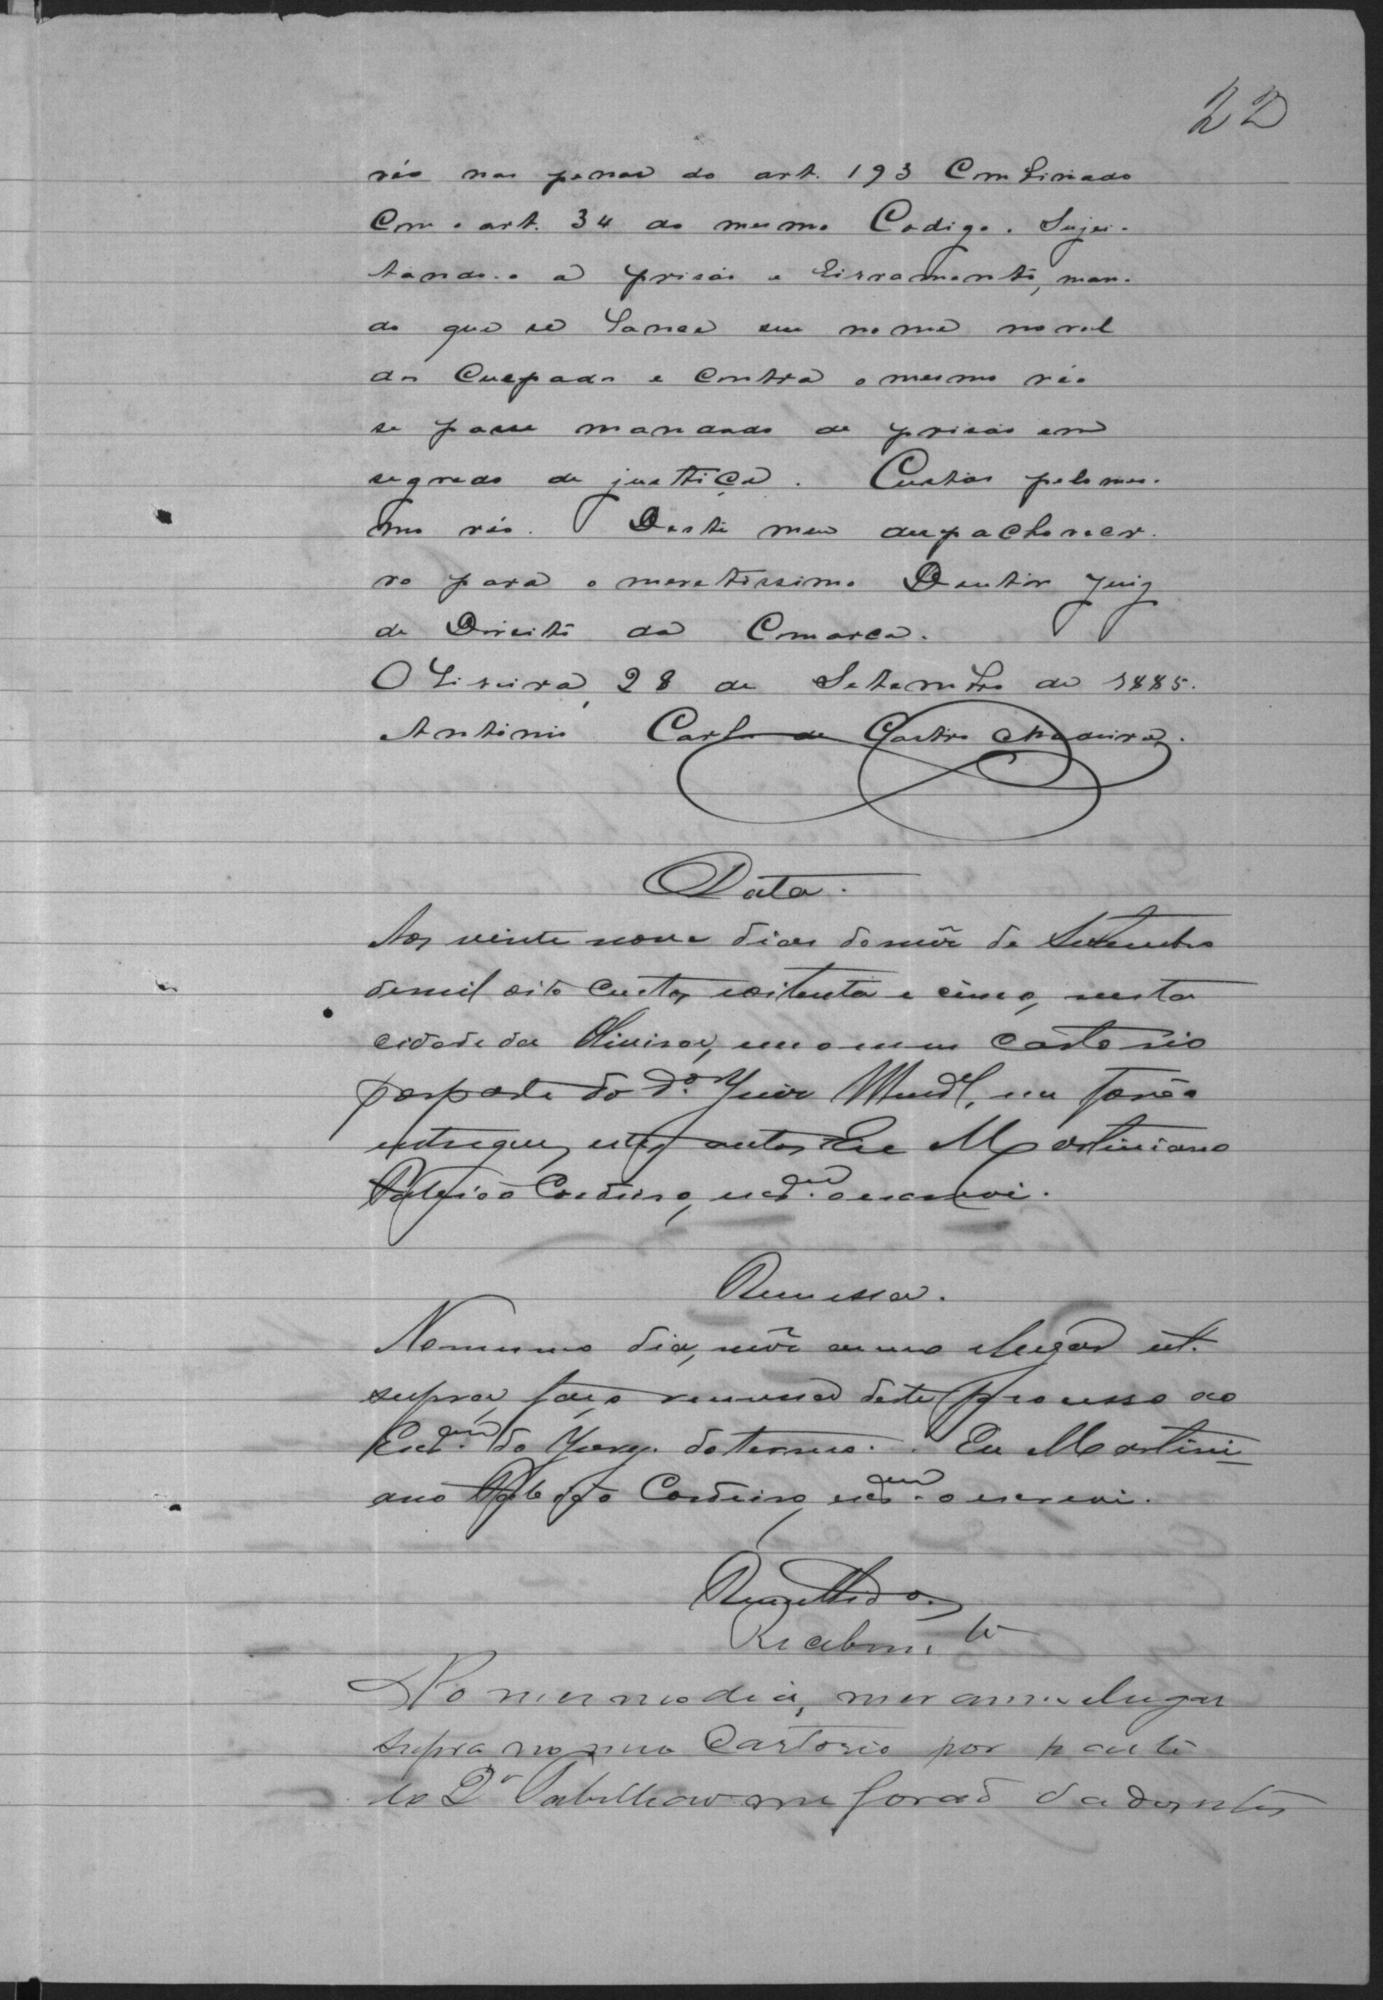 22
réo nas penas do art. 193 Combinado
Com o art. 34 do mesmo Codigo. Sujei-
tando-o a prisão e livramento, man-
do que se lance seu nome no rol
dos Culpados e contra o mesmo réo
se passe mandado de prisão em
segredo de justiça. Custas pelo mes-
mo réo. Deste meu despacho recor-
ro para o meretissimo Doutor Juiz
de Direito da Comarca.
Oliveira, 28 de Setembro de 1885.
Antonio Carlos de Castro Madeira.
Data.
Aos vinte nove dias do mês de Setembro
de mil oito centos e oitenta e cinco, nesta
cidade da Oliveira, em o meu cartorio
por parte do Dr. Juiz Mun.al, me forão
entregues estes autos Eu Martiniano
Cordeiro, escrm. o escrevi.
Remessa.
No mesmo dia, mês anno e lugar ut.
supra, faço remessa deste processo ao
Escrm. do Jury. do termo. Eu Martini-
ano Cordeiro, escrm. o escrevi.
Remettido.
Recebim.to
No mesmo dia, mes anno e lugar
supra no meu Cartorio por parte
do 2º Tabelliao me forão dados estes